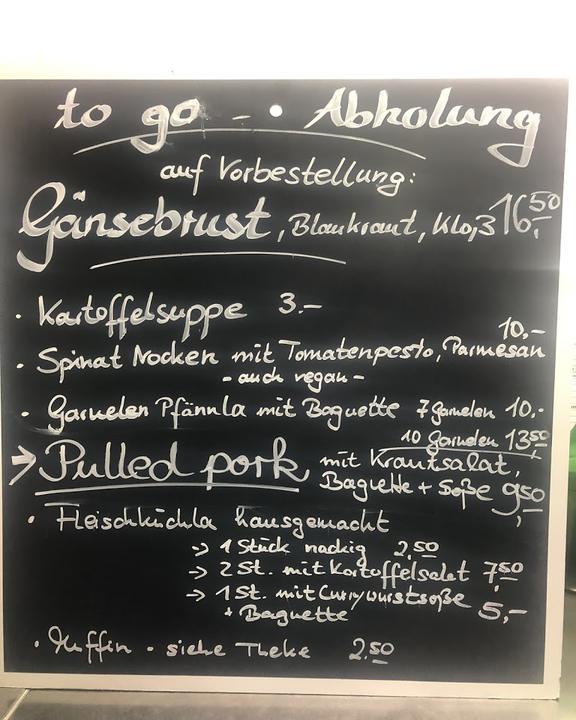 to go - Abholung
auf Vorbestellung:
Gänsebrust, Blaukraut, Kloß 16,50
· Kartoffelsuppe 3.-
10,-
· Spinat Nocken mit Tomatenpesto, Parmesan
- auch vegan -
· Garnelen Pfännla mit Baguette 7 Garnelen 10.-
10 Garnelen 13,50
→ Pulled pork mit Krautsalat,
Baguette + Soße 9,50
· Fleischküchla hausgemacht
→ 1 Stück nackig 2,50
→ 2 St. mit Kartoffelsalat 7,50
→ 1 St. mit Currywurstsoße
+ Baguette 5,-
· Muffin - siehe Theke 2.50